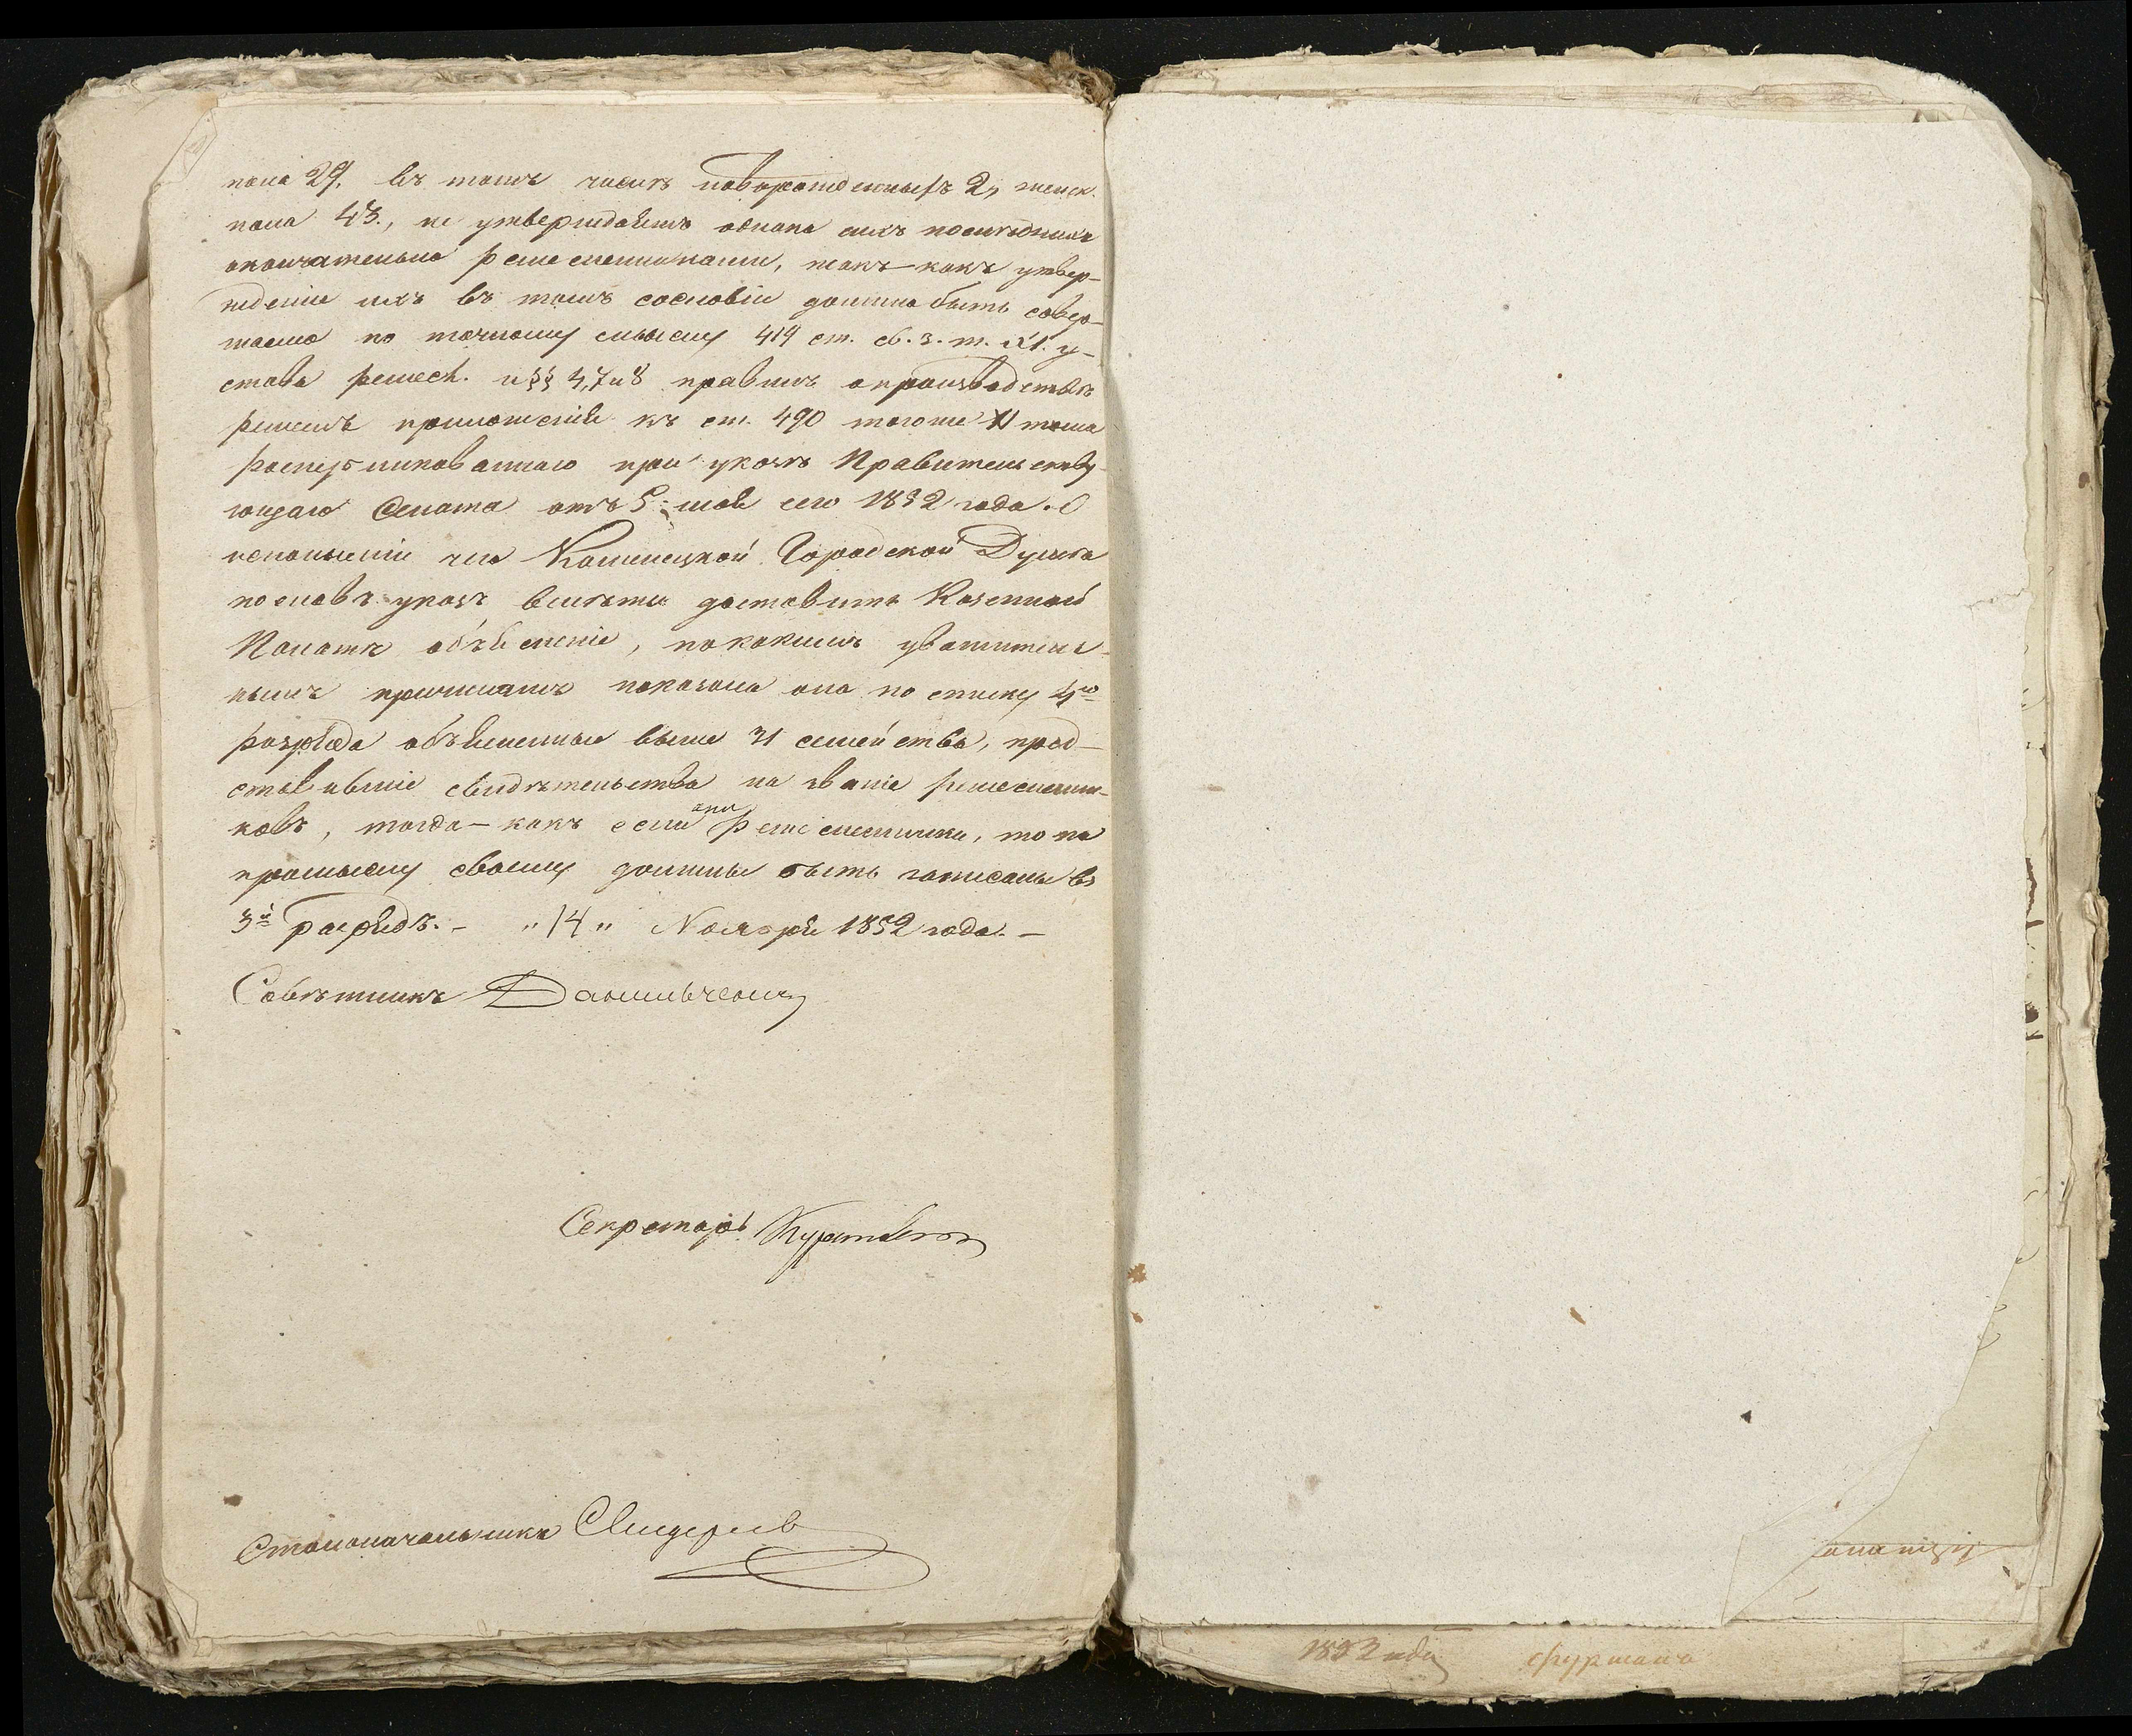 пола 29. въ томъ числѣ новорожденныхъ 2, женск.
пола 43., не утверждаетъ однако сихъ послѣднихъ
окончательно ремесленниками, такъ-какъ утвер-
жденіе ихъ въ томъ сословіи должно быть совер-
шаемо по точному смыслу 414 ст. св. з. т. XI. у-
става ремесл. и §§ 4, 7 и 8 правилъ о производствѣ
приложенія къ ст. 490 тогоже XI тома
распубликованнаго при указѣ Правительству-
ющаго Сената отъ 5 мая сего 1852 года. О
исполненіи чего Каменецкой Городской Думѣ
пославъ указъ велѣть доставить Казенной
Палатѣ объясненіе, по какимъ уважитель-
нымъ причинамъ показала она по списку 4го
разряда объясненные выше 31 семейства, пред-
ставившіе свидѣтельства на званіе ремесленни-
ковъ, тогда-какъ если они ремесленники, то по
промыслу своему должны быть записаны въ
3й разрядъ. - "14" Ноября 1852 года. -
Совѣтникъ Данильченко
Секретарь
Столоначальникъ